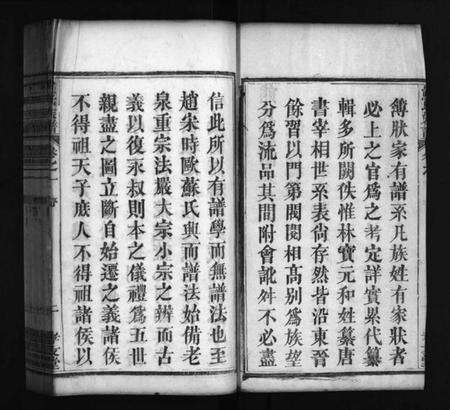 簿狀家有譜系凡族姓有家狀者
必上之官爲之考定詳實累代纂
輯多所闕佚惟林寶元和姓纂唐
書宰相世系表尚存然皆沿東晉
餘習以門第閥閱相高別爲族望
分爲流品其間附會訛舛不必盡
信此所以有譜學而無譜法也至
趙宋時歐蘇氏興而譜法始備老
泉重宗法嚴大宗小宗之辨而古
義以復永叔則本之儀禮爲五世
親盡之圖立斷自始遷之義諸侯
不得祖天子庶人不得祖諸侯以